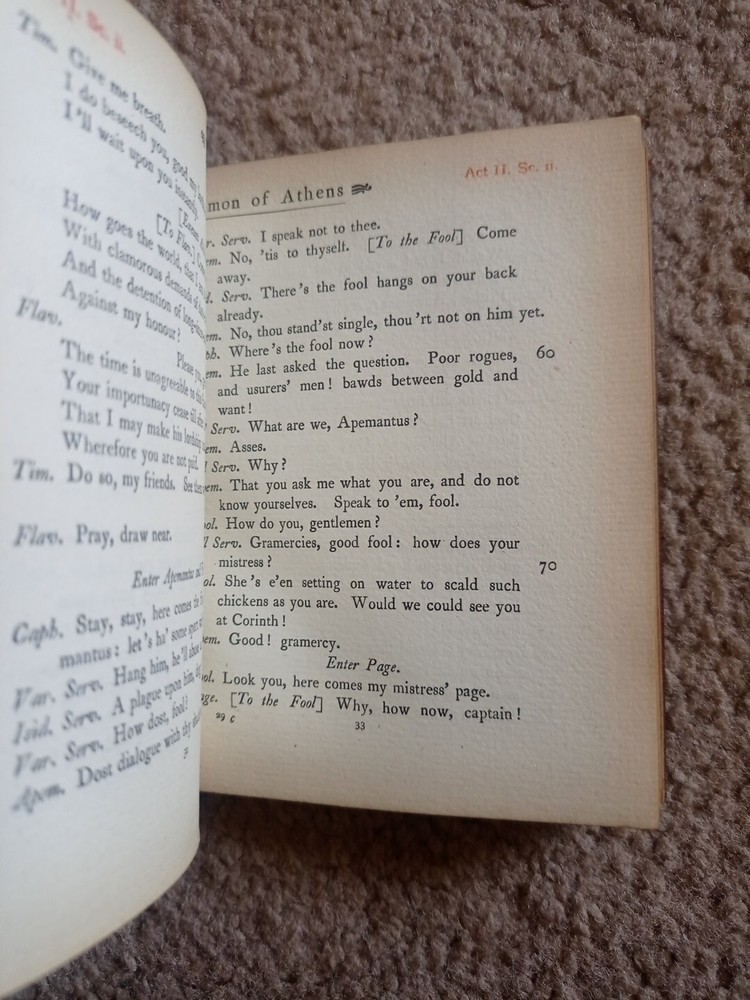 Sc. ii.
Tim. Give me breath.
I do beseech you, good my
I'll wait upon you instantly.
[To Flav.]
How goes the world, that I
With clamorous demands of
And the detention of
Against my honour?
Flav. Please
The time is unagreeable to this
Your importunacy cease till
That I may make his lordship
Wherefore you are not paid.
Tim. Do so, my friends. See
Flav. Pray, draw near.
Enter Apemantus
Caph. Stay, stay, here comes the
mantus: let's ha' some sport
Var. Serv. Hang him, he'll abuse
Isid. Serv. A plague upon him,
Var. Serv. How dost, fool?
Apem. Dost dialogue with thy
mon of Athens
Act II. Sc. ii.
r. Serv. I speak not to thee.
em. No, 'tis to thyself. [To the Fool] Come
away.
d. Serv. There's the fool hangs on your back
already.
em. No, thou stand'st single, thou 'rt not on him yet.
ph. Where's the fool now?
em. He last asked the question. Poor rogues, 60
and usurers' men! bawds between gold and
want!
Serv. What are we, Apemantus?
em. Asses.
Serv. Why?
em. That you ask me what you are, and do not
know yourselves. Speak to 'em, fool.
ol. How do you, gentlemen?
l Serv. Gramercies, good fool: how does your
mistress? 70
ol. She's e'en setting on water to scald such
chickens as you are. Would we could see you
at Corinth!
em. Good! gramercy.
Enter Page.
ol. Look you, here comes my mistress' page.
age. [To the Fool] Why, how now, captain!
29 c
33